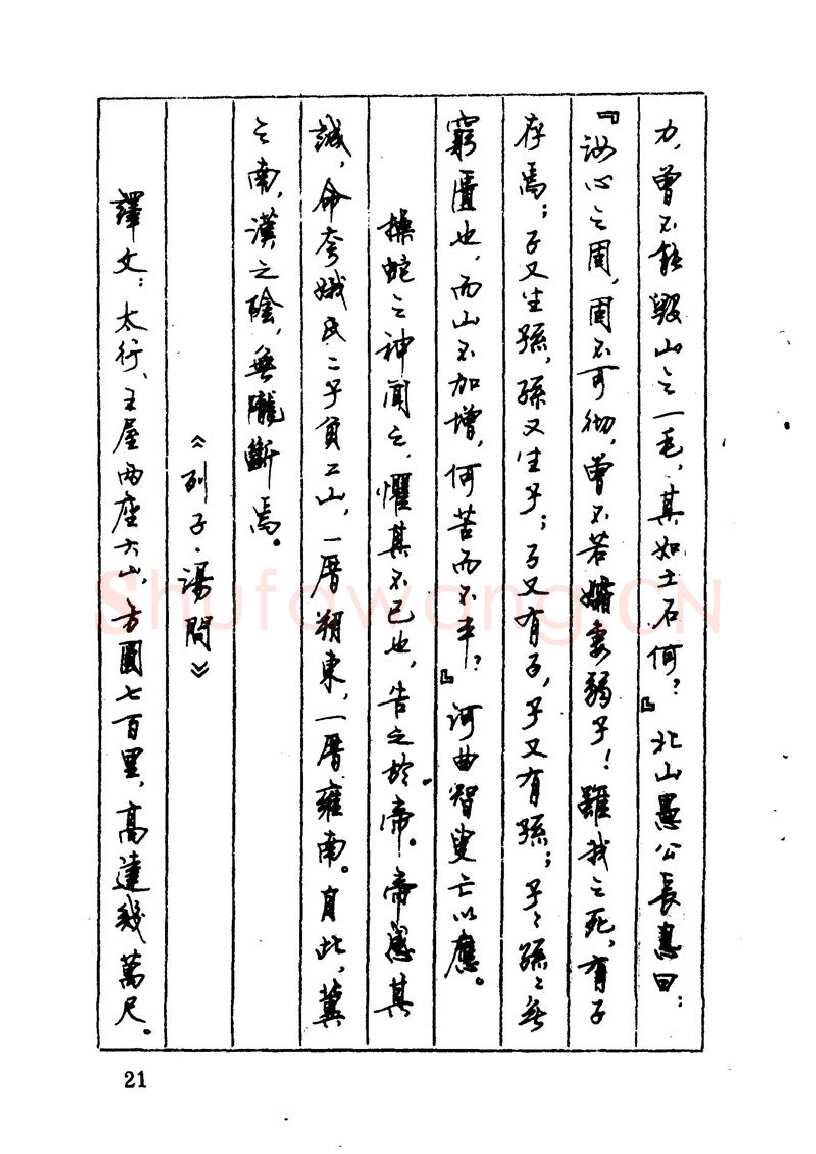 力，曾不能毀山之一毛，其如土石何？』北山愚公長息曰：
『汝心之固，固不可彻，曾不若孀妻弱子！雖我之死，有子
存焉；子又生孫，孫又生子；子又有子，子又有孫；子〻孫〻無
窮匱也，而山不加增，何苦而不平？』河曲智叟亡以應。
操蛇之神聞之，懼其不已也，告之於帝。帝感其
誠，命夸娥氏二子負二山，一厝朔東，一厝雍南。自此，冀
之南，漢之陰，無隴斷焉。
《列子·湯問》
譯文：太行、王屋兩座大山，方圓七百里，高達幾萬尺。
21
Shufawang.CN